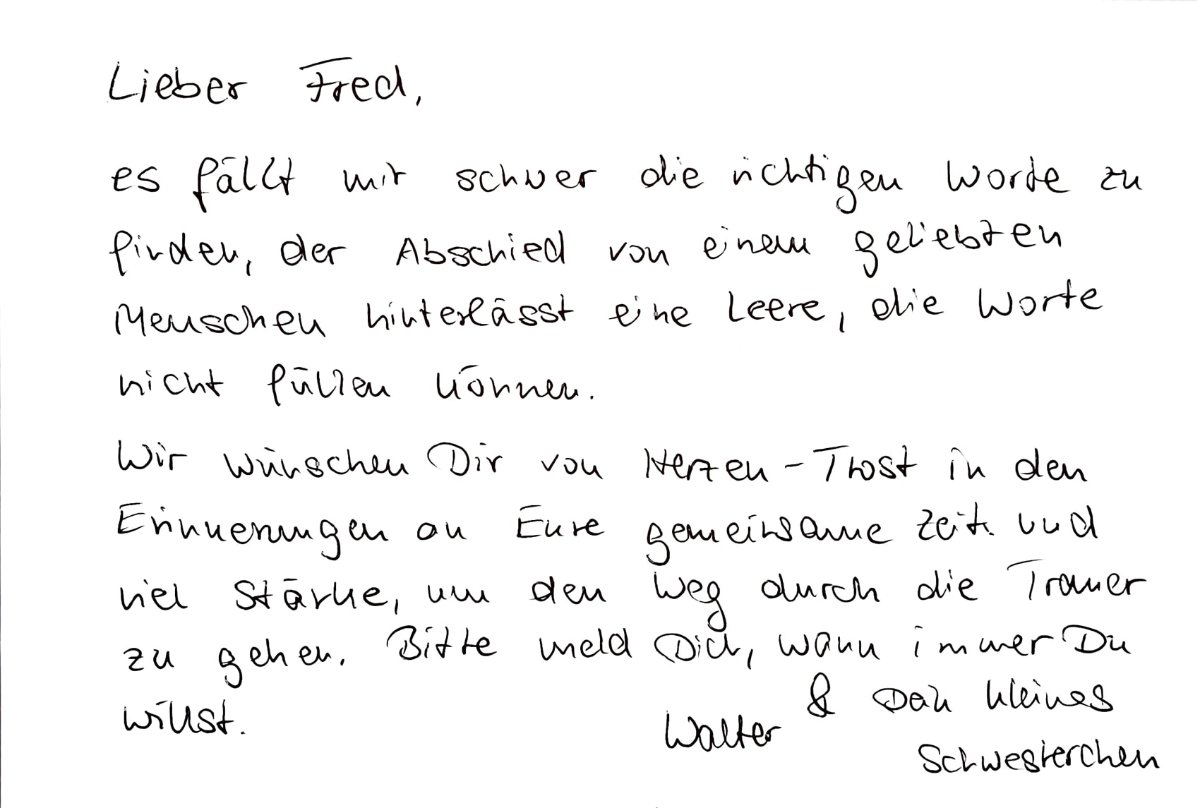 Lieber Fred,
es fällt mir schwer die richtigen Worte zu
finden, der Abschied von einem geliebten
Menschen hinterlässt eine Leere, die Worte
nicht füllen können.
Wir wünschen Dir von Herzen - Trost in den
Erinnerungen an Eure gemeinsame Zeit und
viel Stärke, um den Weg durch die Trauer
zu gehen. Bitte meld Dich, wann immer Du
willst.
Walter & Dein kleines
Schwesterchen